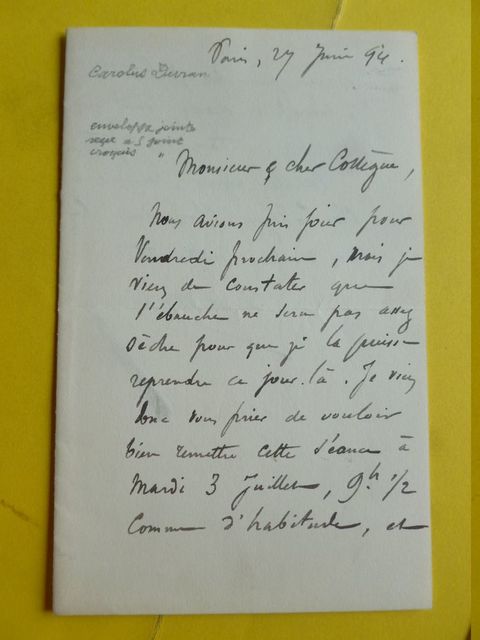 Paris, 27 Juin 94.
Carolus Duran
enveloppe jointe
croquis "
Monsieur & cher Collègue,
Nous avions pris jour pour
Vendredi prochain, mais je
viens de constater que
l'ébauche ne sera pas assez
sèche pour que je la puisse
reprendre ce jour-là. Je viens
donc vous prier de vouloir
bien remettre cette séance à
Mardi 3 Juillet, 9h 1/2
comme d'habitude, et